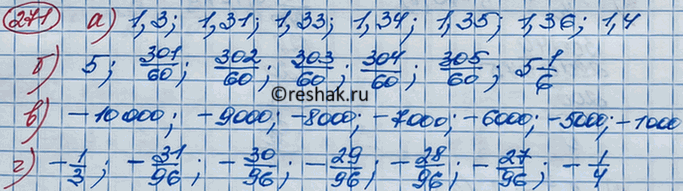 271 а) 1,3; 1,31; 1,33; 1,34; 1,35; 1,36; 1,4
б) 5; 301/60; 302/60; 303/60; 304/60; 305/60; 5 1/6
©reshak.ru
в) -10000; -9000; -8000; -7000; -6000; -5000; -1000
г) -1/3; -31/96; -30/96; -29/96; -28/96; -27/96; -1/4